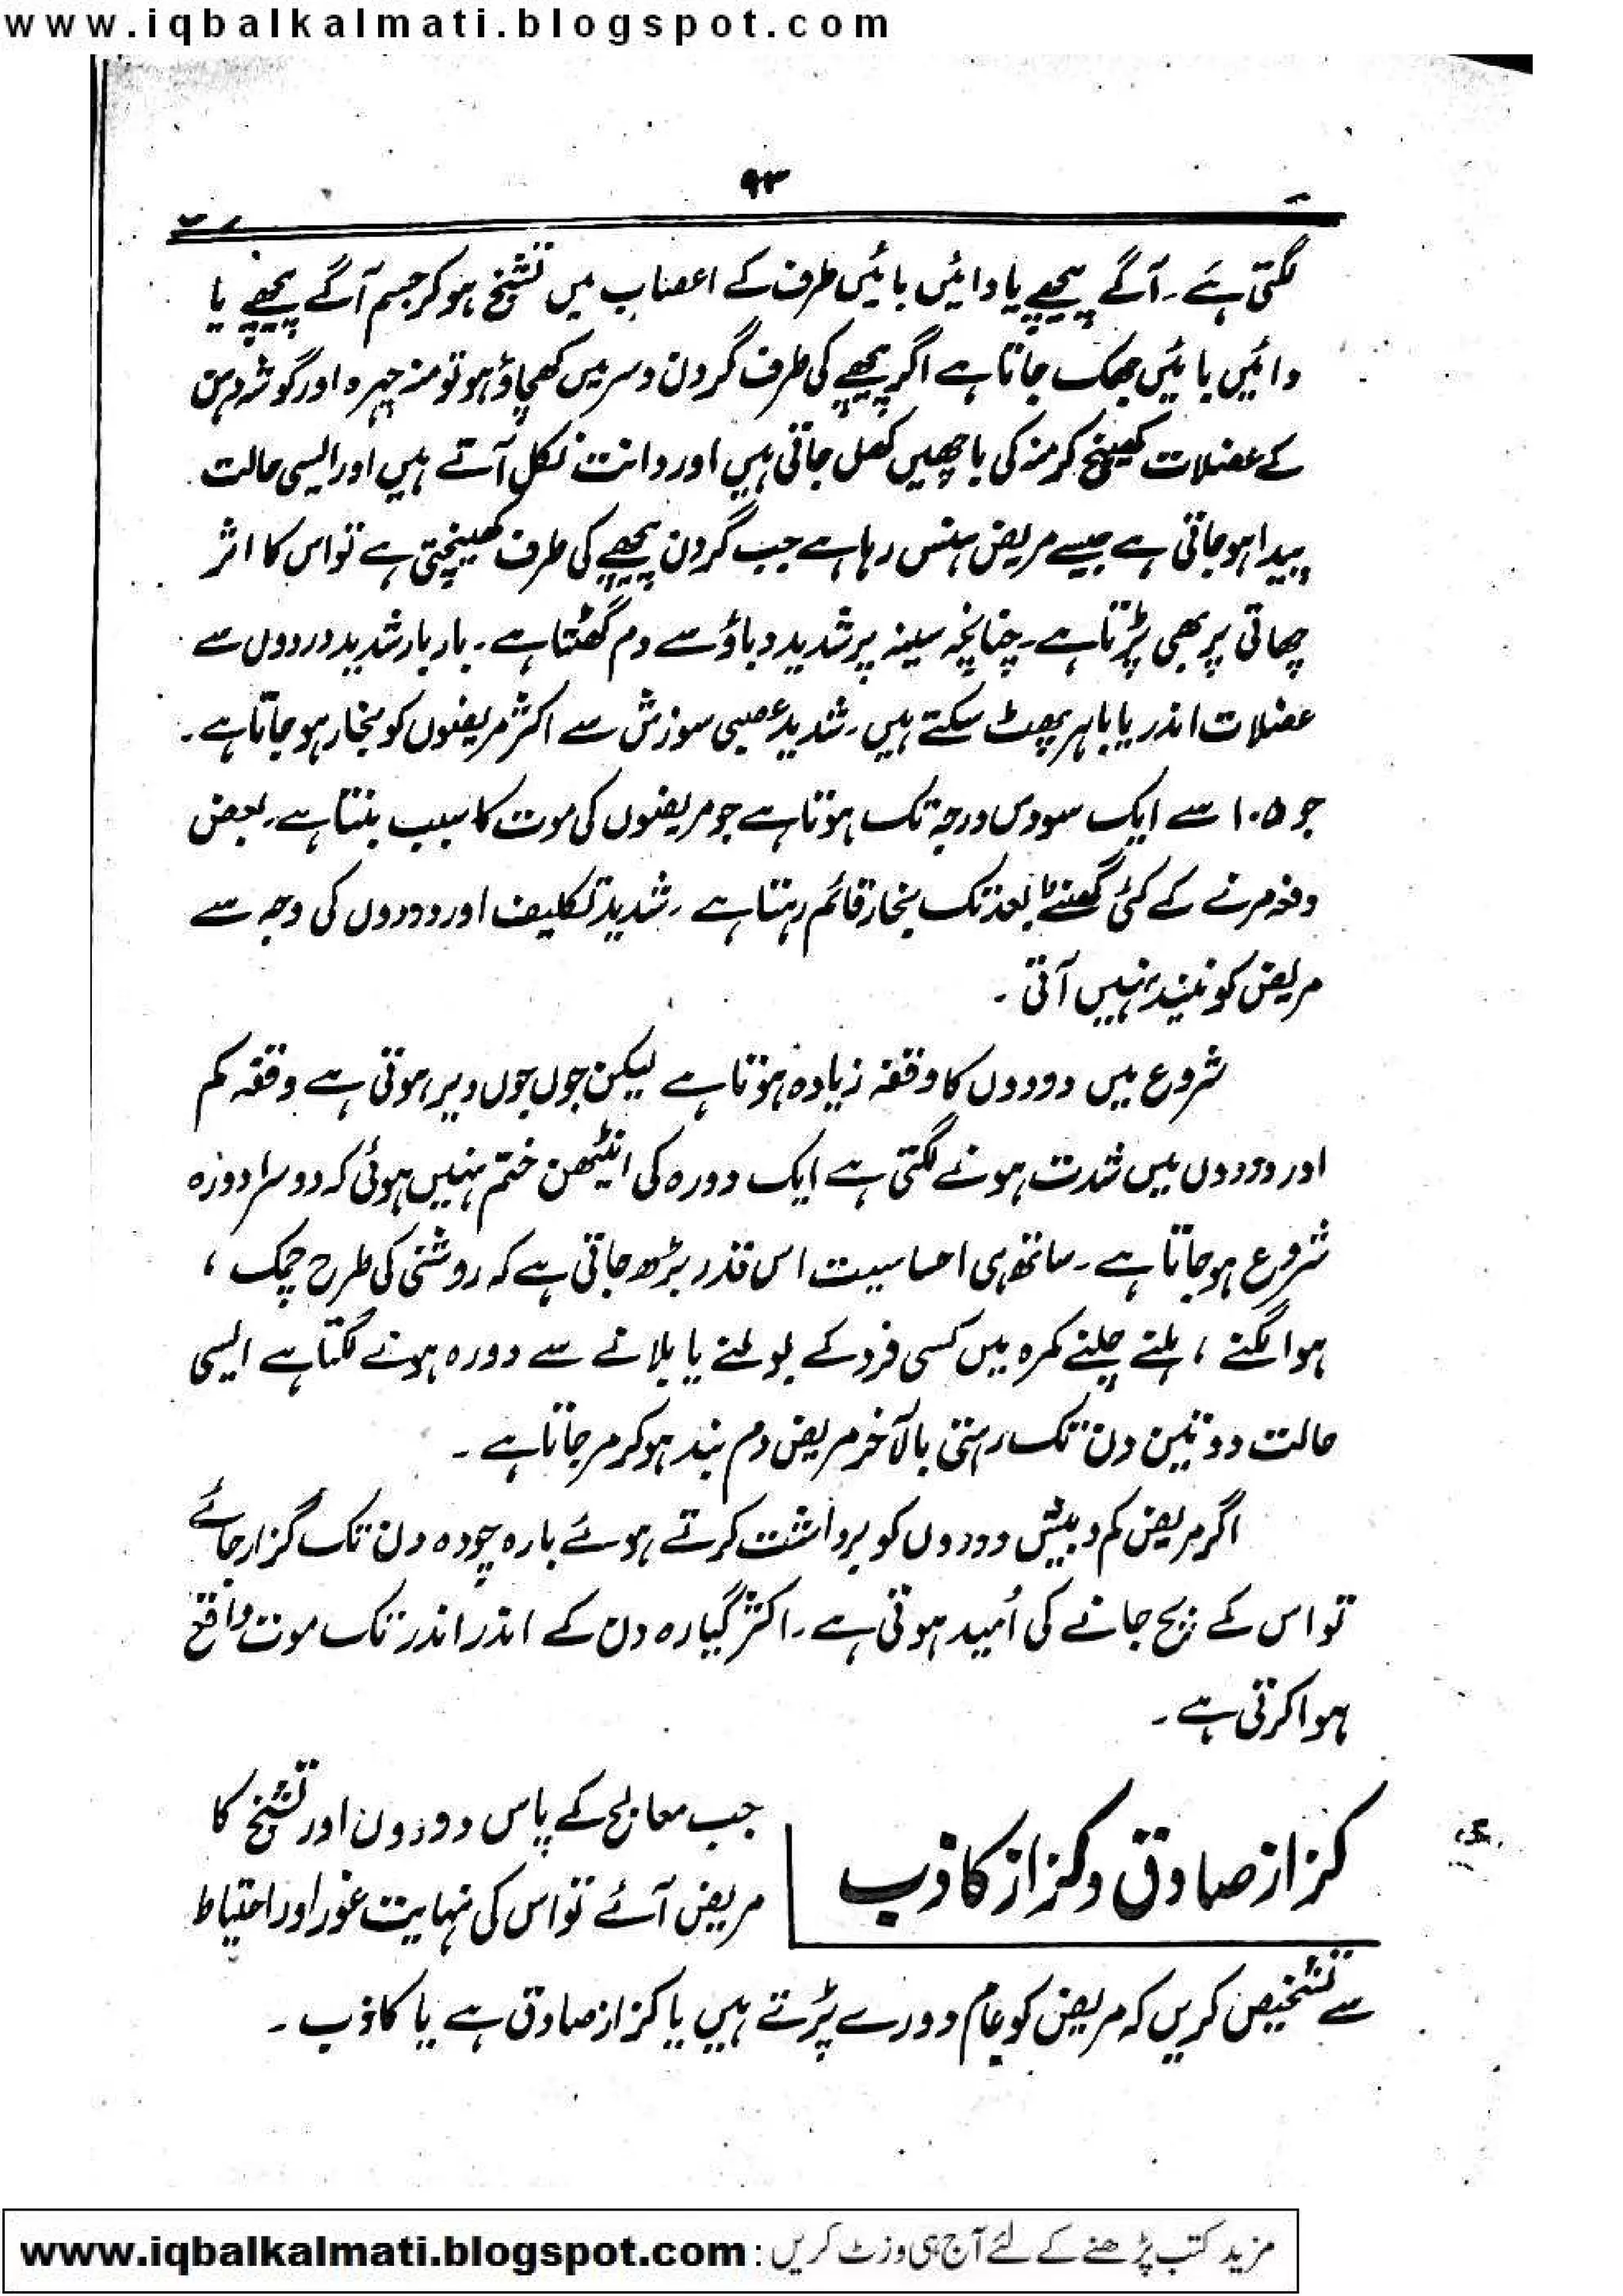 www.iqbalkalmati.blogspot.com
۹۳
لگتی ہے۔ آگے پیچھے یا دائیں بائیں طرف کے اعصاب میں تشنج ہو کر جسم آگے پیچھے یا
دائیں بائیں جھک جاتا ہے اگر پیچھے کی طرف گردن و سر میں کھچاؤ ہو تو منہ چہرہ اور گوشہ دہن
کے عضلات کھینچ کر منہ کی باچھیں کھل جاتی ہیں اور دانت نکل آتے ہیں اور ایسی حالت
پیدا ہو جاتی ہے جیسے مریض ہنس رہا ہے جب گردن پیچھے کی طرف کھینچتی ہے تو اس کا اثر
چھاتی پر بھی پڑتا ہے۔ چنانچہ سینہ پر شدید دباؤ سے دم گھٹتا ہے۔ بار بار شدید دردوں سے
عضلات اندر یا باہر پھٹ سکتے ہیں۔ شدید عصبی سوزش سے اکثر مریضوں کو بخار ہو جاتا ہے۔
جو ۱۰۵ سے ایک سو دس درجہ تک ہوتا ہے جو مریضوں کی موت کا سبب بنتا ہے۔ بعض
دفعہ مرنے کے کئی گھنٹے بعد تک بخار قائم رہتا ہے۔ شدید تکلیف اور دوروں کی وجہ سے
مریض کو نیند نہیں آتی۔
شروع میں دوروں کا وقفہ زیادہ ہوتا ہے لیکن جوں جوں دیر ہوتی ہے وقفہ کم
اور دوروں میں شدت ہونے لگتی ہے ایک دورہ کی اینٹھن ختم نہیں ہوئی کہ دوسرا دورہ
شروع ہو جاتا ہے۔ ساتھ ہی احساسیت اس قدر بڑھ جاتی ہے کہ روشنی کی طرح چمک،
ہوا لگنے، ہلنے چلنے کمرہ میں کسی فرد کے بولنے یا بلانے سے دورہ ہونے لگتا ہے ایسی
حالت دو تین دن تک رہتی بالآخر مریض دم بند ہو کر مر جاتا ہے۔
اگر مریض کم و بیش دوروں کو برداشت کرتے ہوئے بارہ چودہ دن تک گزار جائے
تو اس کے بچ جانے کی اُمید ہوتی ہے۔ اکثر گیارہ دن کے اندر اندر تک موت واقع
ہوا کرتی ہے۔
کزاز صادق و کزاز کاذب
جب معالج کے پاس دوروں اور تشنج کا
مریض آئے تو اس کی نہایت غور اور احتیاط
سے تشخیص کریں کہ مریض کو عام دورے پڑتے ہیں یا کزاز صادق ہے یا کاذب۔
مزید کتب پڑھنے کے لئے آج ہی وزٹ کریں : www.iqbalkalmati.blogspot.com